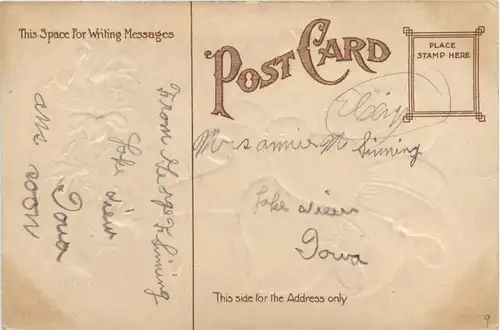 This Space For Writing Messages
POST CARD
PLACE
STAMP HERE
From George H Sinning
Lake view
Iowa
ans soon
Mrs annie M Sinning
Lake view
Iowa
This side for the Address only
9